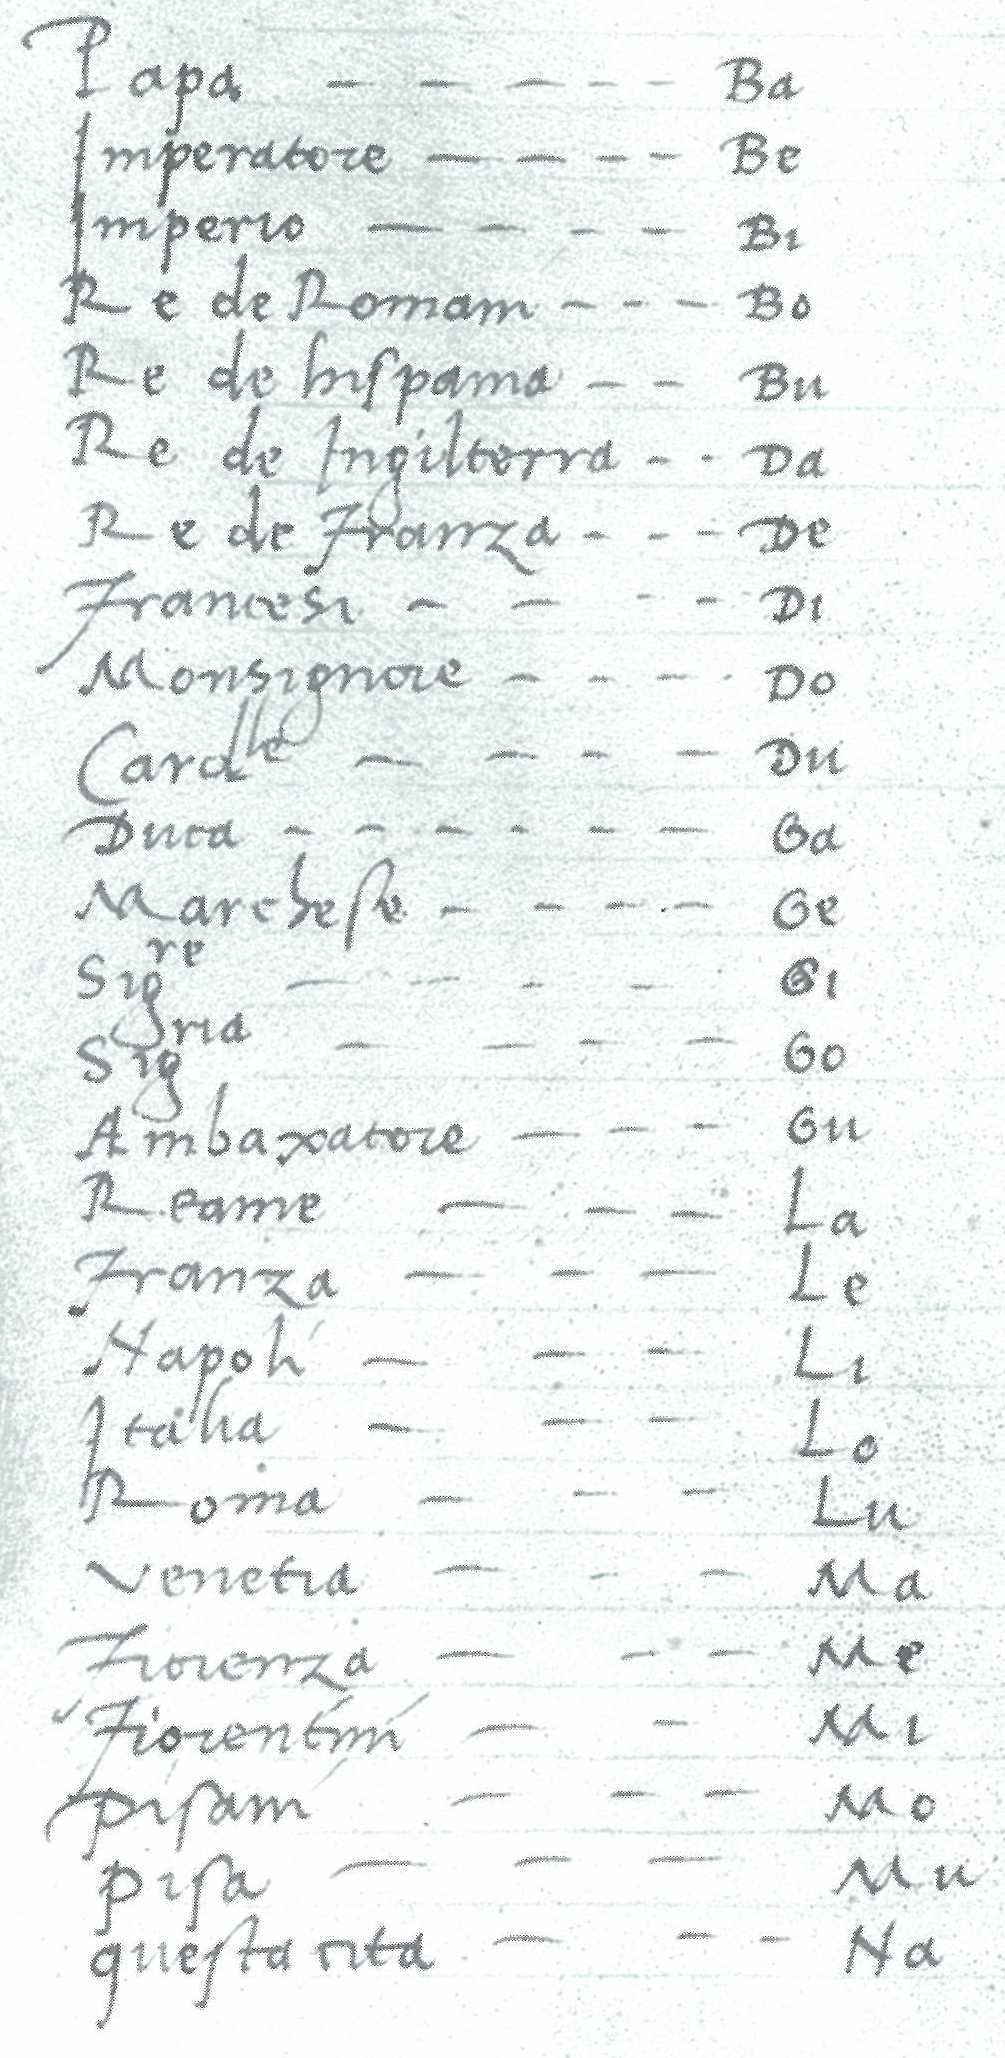 Papa - - - - - Ba
Imperatore - - - - Be
Imperio - - - - Bi
Re de Romani - - - Bo
Re de hispania - - Bu
Re de Ingilterra - - Da
Re de Franza - - - De
Francesi - - - - Di
Monsignore - - - - Do
Card^lle - - - - Du
Duca - - - - - - Ga
Marchese - - - - Ge
Sig^re - - - - Gi
Sig^ria - - - - Go
Ambaxatore - - - Gu
Reame - - - La
Franza - - - Le
Napoli - - - Li
Italia - - - Lo
Roma - - - Lu
Venetia - - - Ma
Fiorenza - - - Me
Fiorentini - - Mi
pisani - - - Mo
pisa - - - Mu
questa cita - - - Na